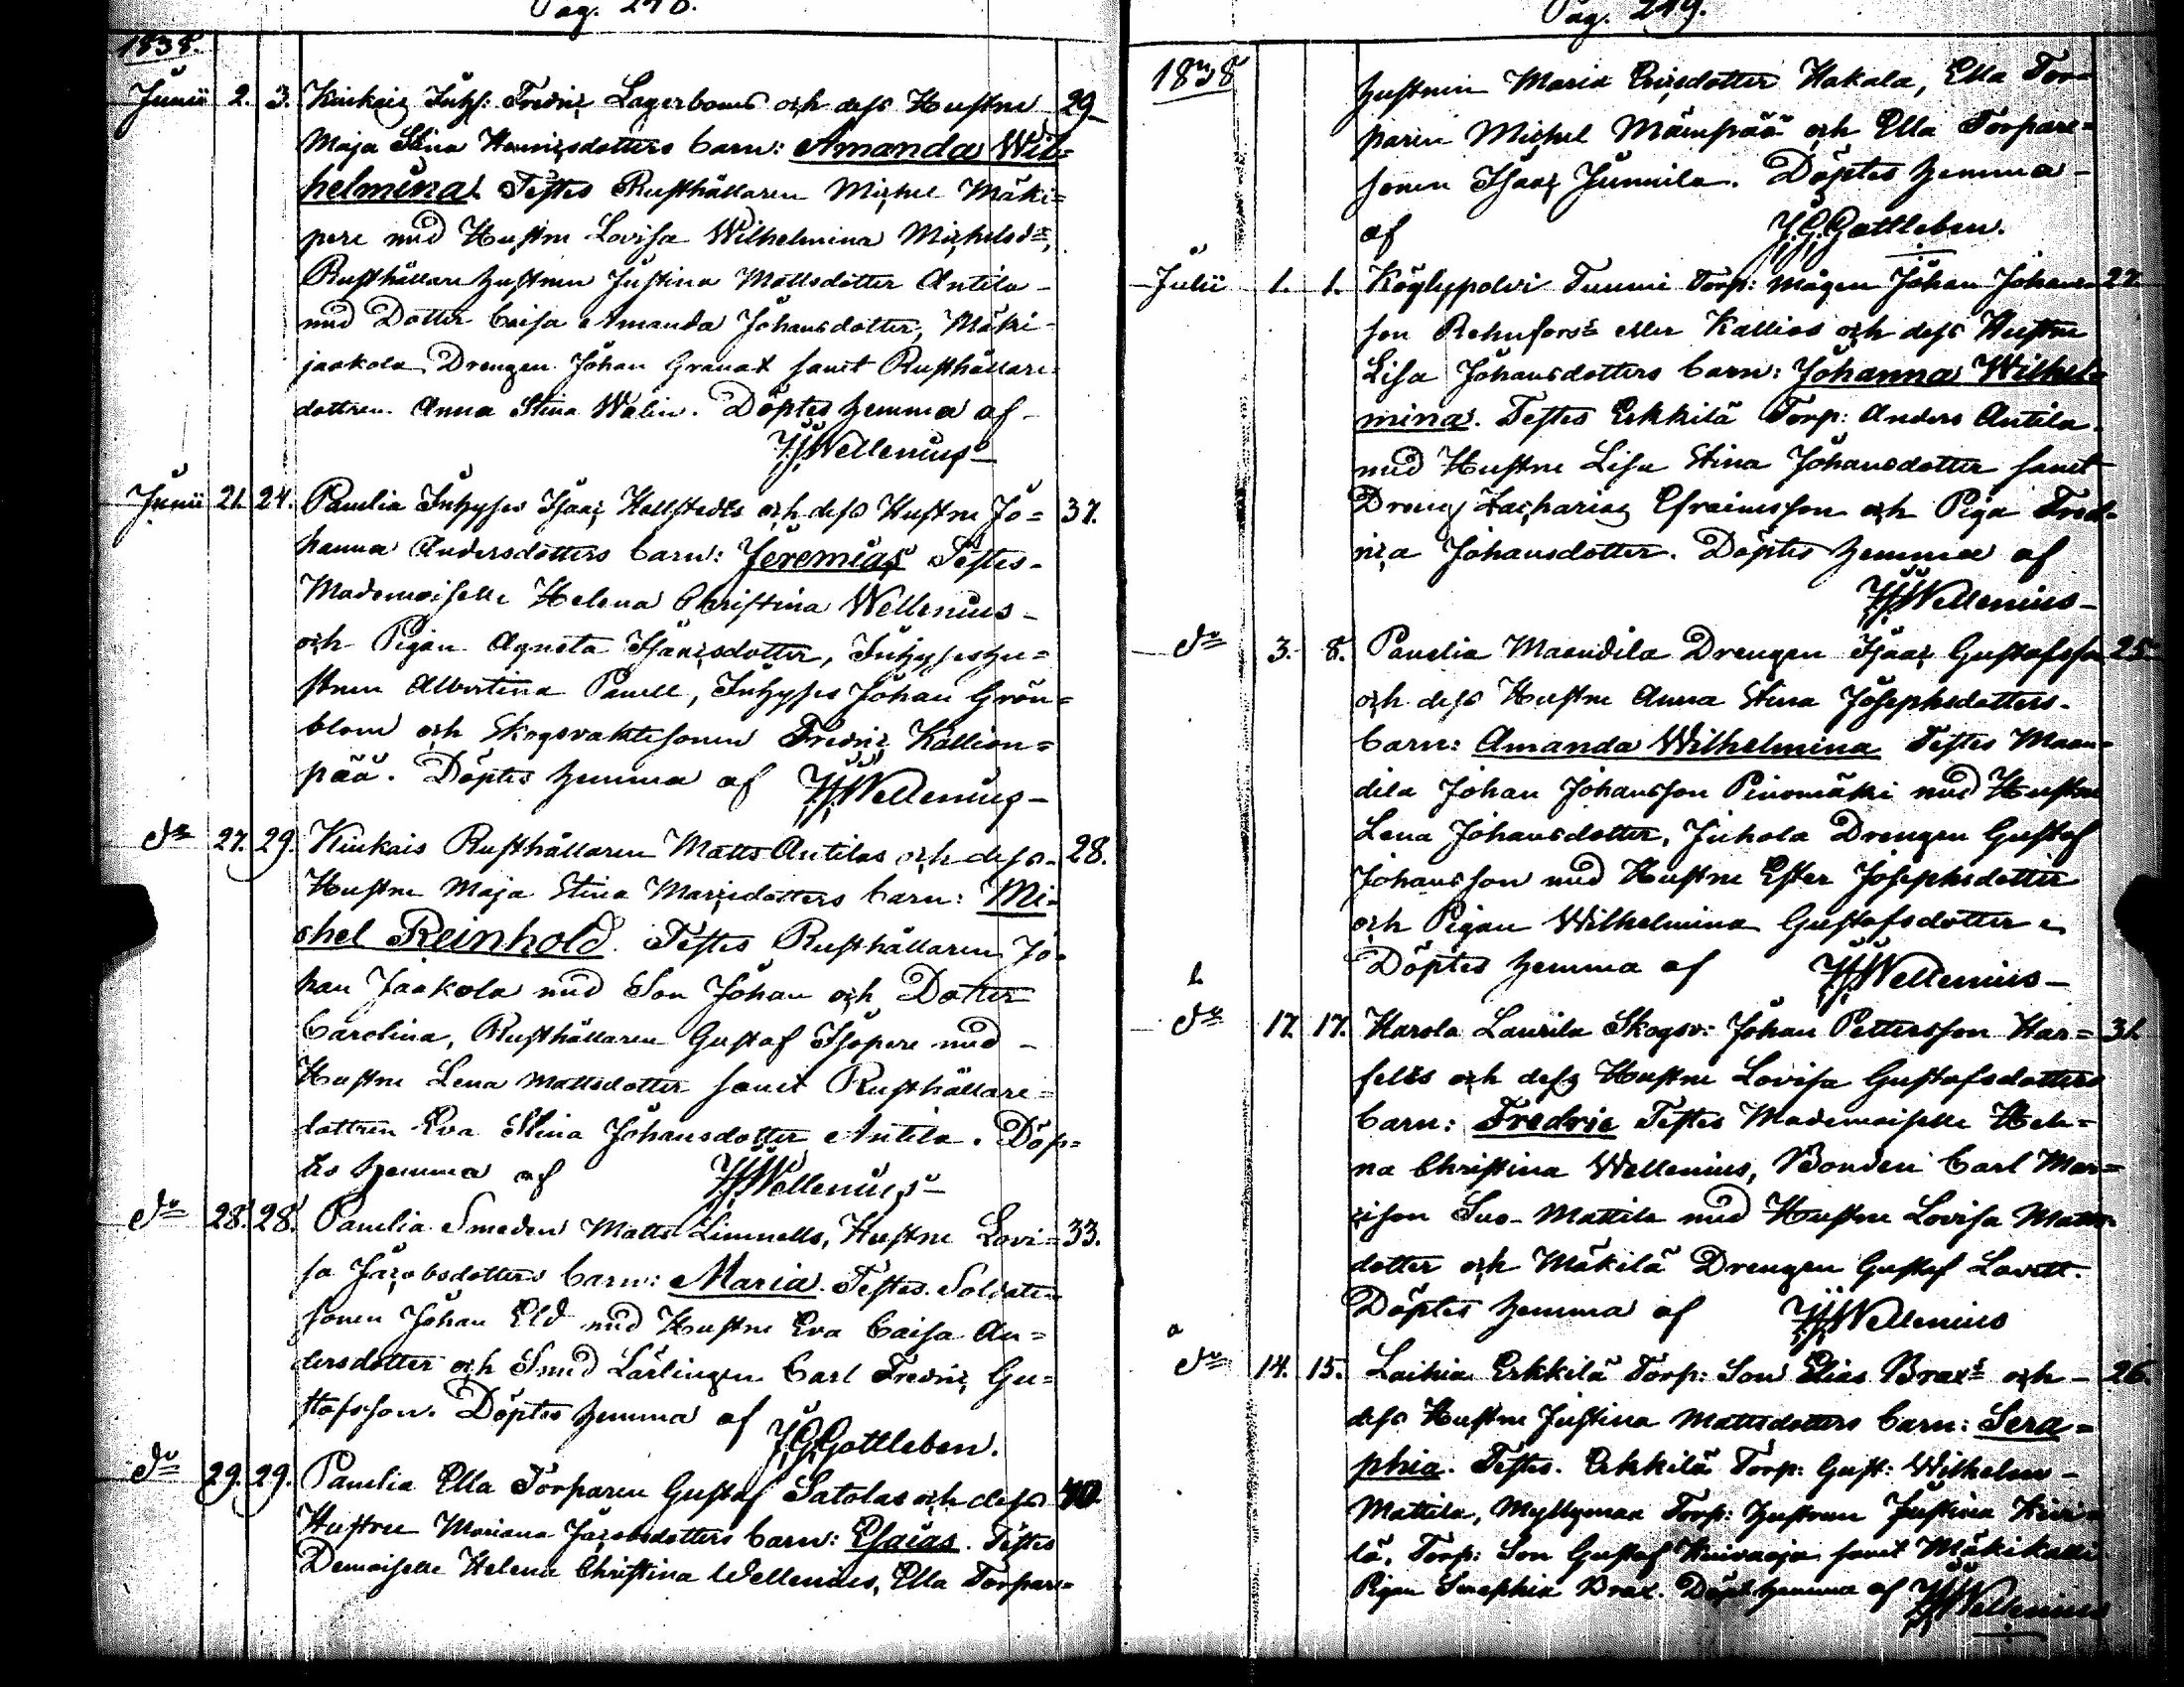 Pag. 248.
1838.
Junii 2. 3. Kiukais Inhs: Fredric Lagerboms och dess Hustru 29
Maja Stina Henricsdotters barn: Amanda Wil=
helmina. Testes Rusthållaren Michel Mäki=
pere med Hustru Lovisa Wilhelmina Michelsdr,
Rusthållarehustrun Justina Mattsdotter Antila
med Dotter Caisa Amanda Johansdotter, Mäki=
jaakola Drengen Johan Granat samt Rusthållare=
dottren Anna Stina Walin. Döptes hemma af
Wellenius
Junii 21. 24. Panelia Inhyses Isaac Hellstedts och dess Hustru Jo= 37.
hanna Andersdotters barn: Jeremias Testes
Mademoiselle Helena Christina Wellenius
och Pigan Agneta Isaacsdotter, Inhyseshu=
strun Albertina Panell, Inhyses Johan Grön=
blom och Skogsvaktesonen Fredric Kallion=
pää. Döptes hemma af Wellenius
do 27. 29. Kiukais Rusthållaren Matts Antilas och dess 28.
Hustru Maja Stina Maricsdotters barn: Mi=
chel Reinhold. Testes Rusthållaren Jo=
han Jaakola med Son Johan och Dotter
Carolina, Rusthållaren Gustaf Isopere med
Hustru Lena Mattsdotter samt Rusthållare=
dottren Eva Stina Johansdotter Antila. Döp=
tes hemma af Wellenius
do 28. 28. Panelia Smeden Matts Limnells, Hustru Lovi= 33.
sa Jacobsdotters barn: Maria. Testes Soldate
sonen Johan Eld med Hustru Eva Caisa An=
dersdotter och Smed Lärlingen Carl Fredric Gu=
stafsson. Döptes hemma af J.G. Gottleben.
do 29. 29. Panelia Ella Torparen Gustaf Satolas och dess 40.
Hustru Mariana Jacobsdotters barn: Esaias. Testes
Demoiselle Helena Christina Wellenius, Ella Torpare=
Pag. 249.
1838
hustrun Maria Ericsdotter Hakala, Ella Tor=
paren Michel Mäenpää och Ella Torpare=
sonen Isaac Junnila. Döptes hemma
af J.G. Gottleben.
Julii 1. 1. Köylypolvi Tuumi Torp: mågen Johan Johans= 27.
son Rehnfors eller Kallios och dess Hustru
Lisa Johansdotters barn: Johanna Wilhel=
mina. Testes Erkkilä Torp: Anders Antila
med Hustru Lisa Stina Johansdotter samt
Dreng Zacharias Efraimsson och Piga Fred=
rica Johansdotter. Döptes hemma af
Wellenius
do 3. 8. Panelia Maandila Drengen Isaac Gustafsson 25.
och dess Hustru Anna Stina Josephsdotters
barn: Amanda Wilhelmina Testes Maan=
dila Johan Johansson Pinomäki med Hustru
Lena Johansdotter, Juhola Drengen Gustaf
Johansson med Hustru Ester Josephsdotter
och Pigan Wilhelmina Gustafsdotter
Döptes hemma af Wellenius
b
do 17. 17. Harola Laurila Skogsv: Johan Pettersson Har= 31.
felts och dess Hustru Lovisa Gustafsdotters
barn: Fredric Testes Mademoiselle Hele=
na Christina Wellenius, Bonden Carl Mar=
icson Suo-Mattila med Hustru Lovisa Matts=
dotter och Mäkilä Drengen Gustaf Lovett.
Döptes hemma af Wellenius
a
do 14. 15. Laihia Erkkilä Torp: Son Elias Brax's och 26.
dess Hustru Justina Mattsdotters barn: Sera=
phia. Testes. Erkkilä Torp: Gust: Wilhelm
Mattila, Myllymaa Torp: hustrun Justina Kivi=
lä, Torp: Son Gustaf Kuivaoja samt Mäkikalli
Pigan Seraphia Brax. Döpt. hemma af Wellenius